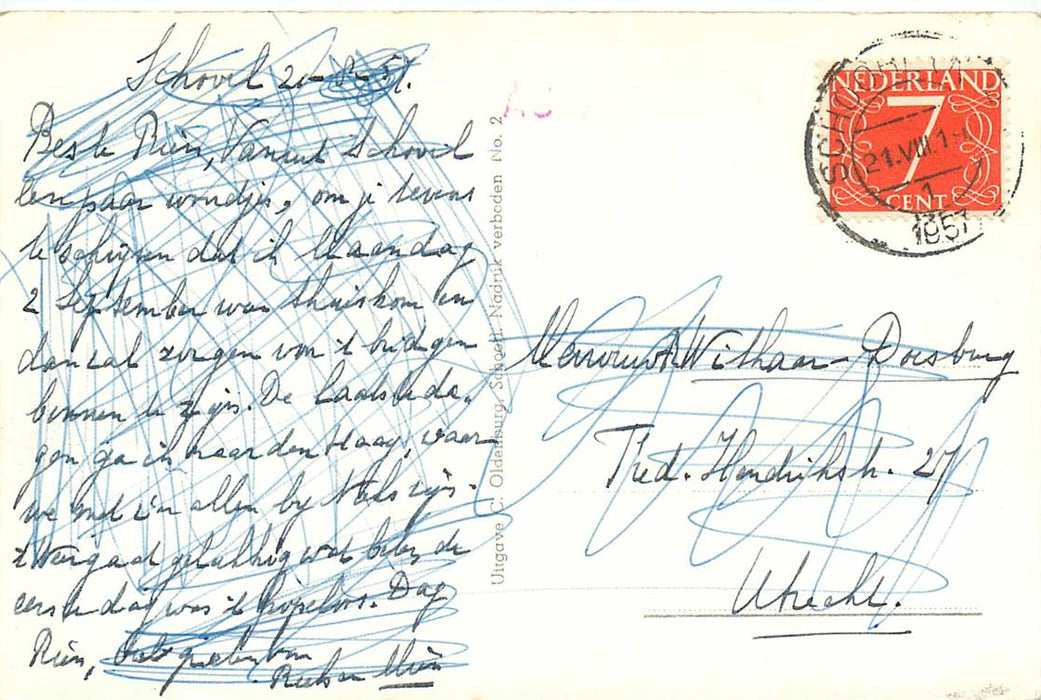 Schoorl 20-8-57.
Beste Riën, Vanuit Schoorl
een paar woordjes, om je tevens
te schrijven dat ik Maandag
2 September weer thuiskom en
dan zal zorgen voor 't bridgen
binnen te zijn. De laatste da-
gen ga ik naar den Haag, waar
we met z'n allen bij zijn.
't Weer gaat gelukkig wat beter, de
eerste dag was 't hopeloos. Dag
Riën, groeten van
Mien
Uitgave C. Oldenburg, Schoorl. Nadruk verboden No. 2
NEDERLAND
7
CENT
SCHOORL
21.VIII.1
1957
Mevrouw Withaar-Doesburg
Fred. Hendrikstr. 27
Utrecht.